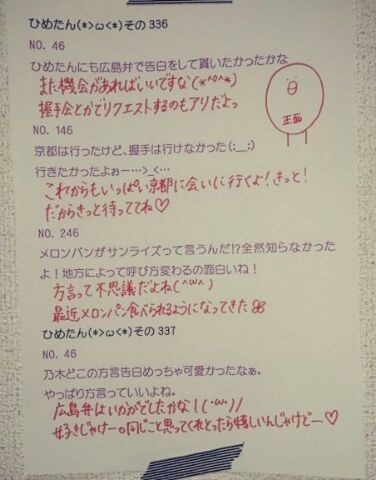 ひめたん(*>ω<*)その336
NO. 46
ひめたんにも広島弁で告白をして貰いたかったかな
また機会があればいいですな(*^o^*)
握手会とかでリクエストするのもアリだよっ
正面
NO. 146
京都は行ったけど、握手は行けなかった(;_;)
行きたかったよぉー…>_<…
これからもいっぱい京都に会いに行くよ!きっと!
だからきっと待っててね♡
NO. 246
メロンパンがサンライズって言うんだ!?全然知らなかった
よ!地方によって呼び方変わるの面白いね!
方言って不思議だよね(^ω^)
最近メロンパン食べられるようになってきた
ひめたん(*>ω<*)その337
NO. 46
乃木どこの方言告白めっちゃ可愛かったなぁ。
やっぱり方言っていいよね。
広島弁はいかがでしたかな!(·ω·)ノ
好きじゃけー。同じこと思ってくれとったら嬉しいんじゃけどー♡